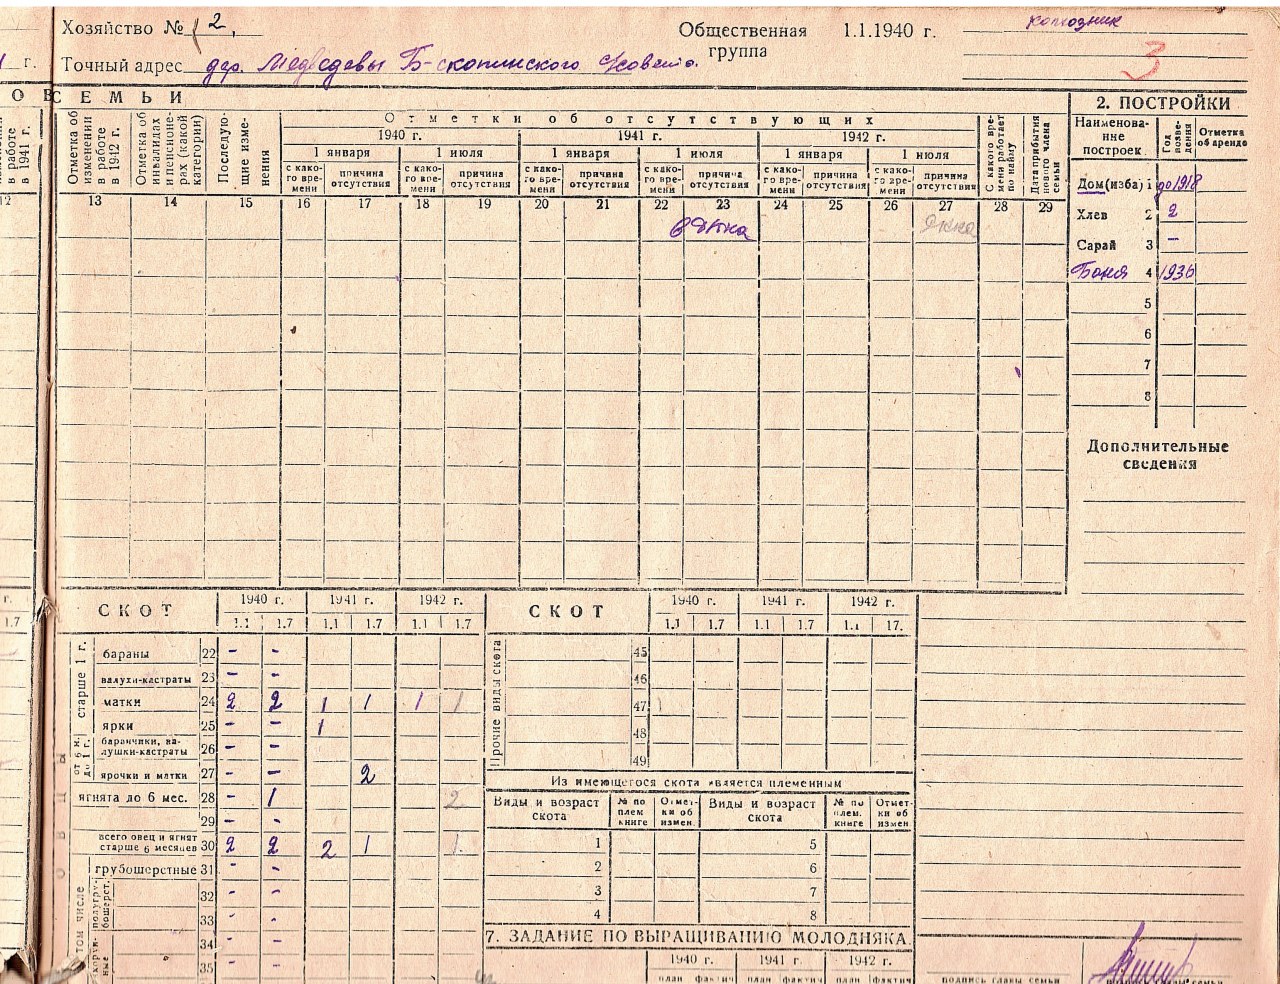 Хозяйство № 2,
Общественная группа 1.1.1940 г. колхозник
3
г. Точный адрес дер. Медведевы Б-скопинского с/совета.
О В СЕМЬИ
2. ПОСТРОЙКИ
в работе в 1941 г.
Отметка об изменении в работе в 1942 г.
Отметка об инвалидах и пенсионерах (какой категории)
Последующие изменения
Отметки об отсутствующих
1940 г. 1941 г. 1942 г.
1 января 1 июля 1 января 1 июля 1 января 1 июля
с какого времени причина отсутствия с какого времени причина отсутствия с какого времени причина отсутствия с какого времени причина отсутствия с какого времени причина отсутствия с какого времени причина отсутствия
С какого времени работает по найму
Дата прибытия нового члена семьи
Наименование построек Год возведения Отметка об аренде
12 13 14 15 16 17 18 19 20 21 22 23 24 25 26 27 28 29
Дом (изба) 1 до 1918
Хлев 2 2
Сарай 3 –
Баня 4 1936
5
6
7
8
Дополнительные сведения
г.
1.7
СКОТ 1940 г. 1941 г. 1942 г.
1.1 1.7 1.1 1.7 1.1 1.7
овцы
старше 1 г.
бараны 22 - -
валухи-кастраты 23 - -
матки 24 2 2 1 1 1 1
ярки 25 - - 1
от 6 м. до 1 г.
баранчики, валушки-кастраты 26 - -
ярочки и матки 27 - - 2
ягнята до 6 мес. 28 - 1 2
29 - -
всего овец и ягнят старше 6 месяцев 30 2 2 2 1 1
том числе
грубошерстные 31 - -
полугрубошерст. 32 - -
33 - -
34 - -
35 - -
СКОТ 1940 г. 1941 г. 1942 г.
1.1 1.7 1.1 1.7 1.1 17.
Прочие виды скота
45
46
47
48
49
Из имеющегося скота является племенным
Виды и возраст скота № по плем. книге Отметки об измен. Виды и возраст скота № по плем. книге Отметки об измен.
1 5
2 6
3 7
4 8
7. ЗАДАНИЕ ПО ВЫРАЩИВАНИЮ МОЛОДНЯКА.
1940 г. 1941 г. 1942 г.
план фактич план фактич план фактич
подпись главы семьи